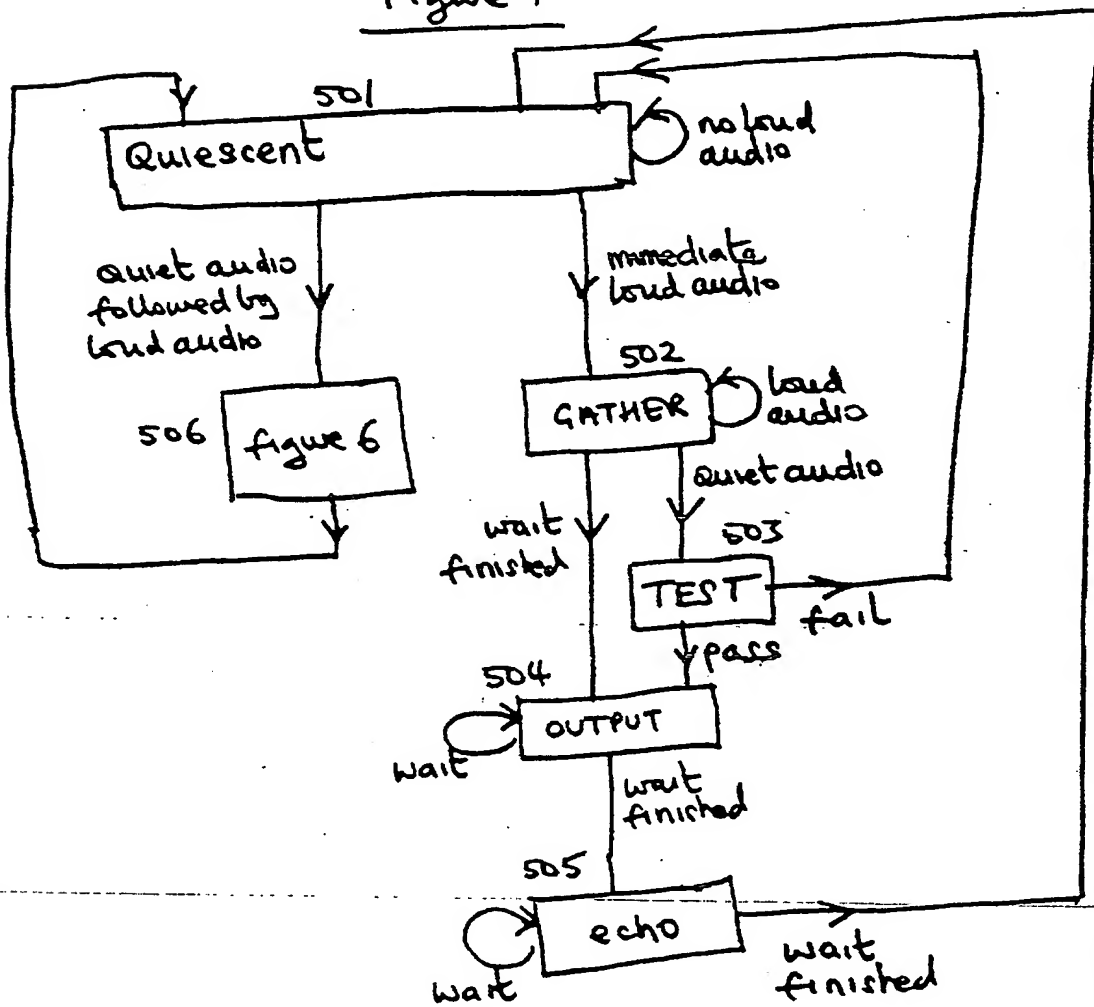 501
Quiescent
no loud
audio
Quiet audio
followed by
loud audio
immediate
loud audio
502
GATHER
loud
audio
506
figure 6
Quiet audio
wait
finished
503
TEST
fail
pass
504
OUTPUT
wait
wait
finished
505
echo
wait
wait
finished